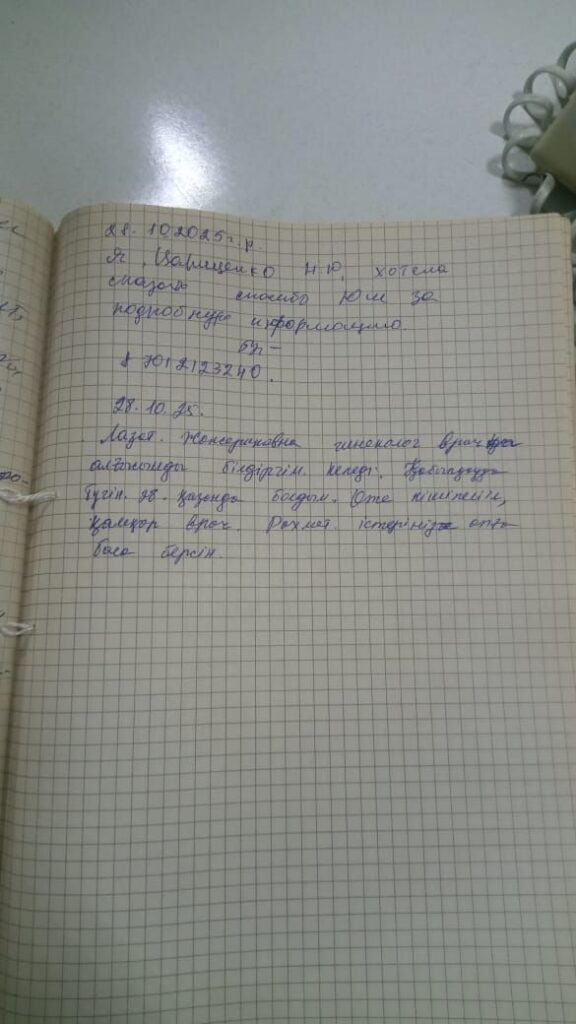 28. 10.2025г.р.
Я, Царищенко Н.Ю, хотела
сказать спасибо Юле за
подробную информацию.
8 7012123240.
28. 10. 25.
Лазат. Жансериковна гинеколог врач
алғысымды білдіргім келеді. Қабылдауда
бүгін. 28. қазанда болдым. Өте кішіпейіл,
қамқор врач. Рахмет. істеріңізге алға
баса берсін.